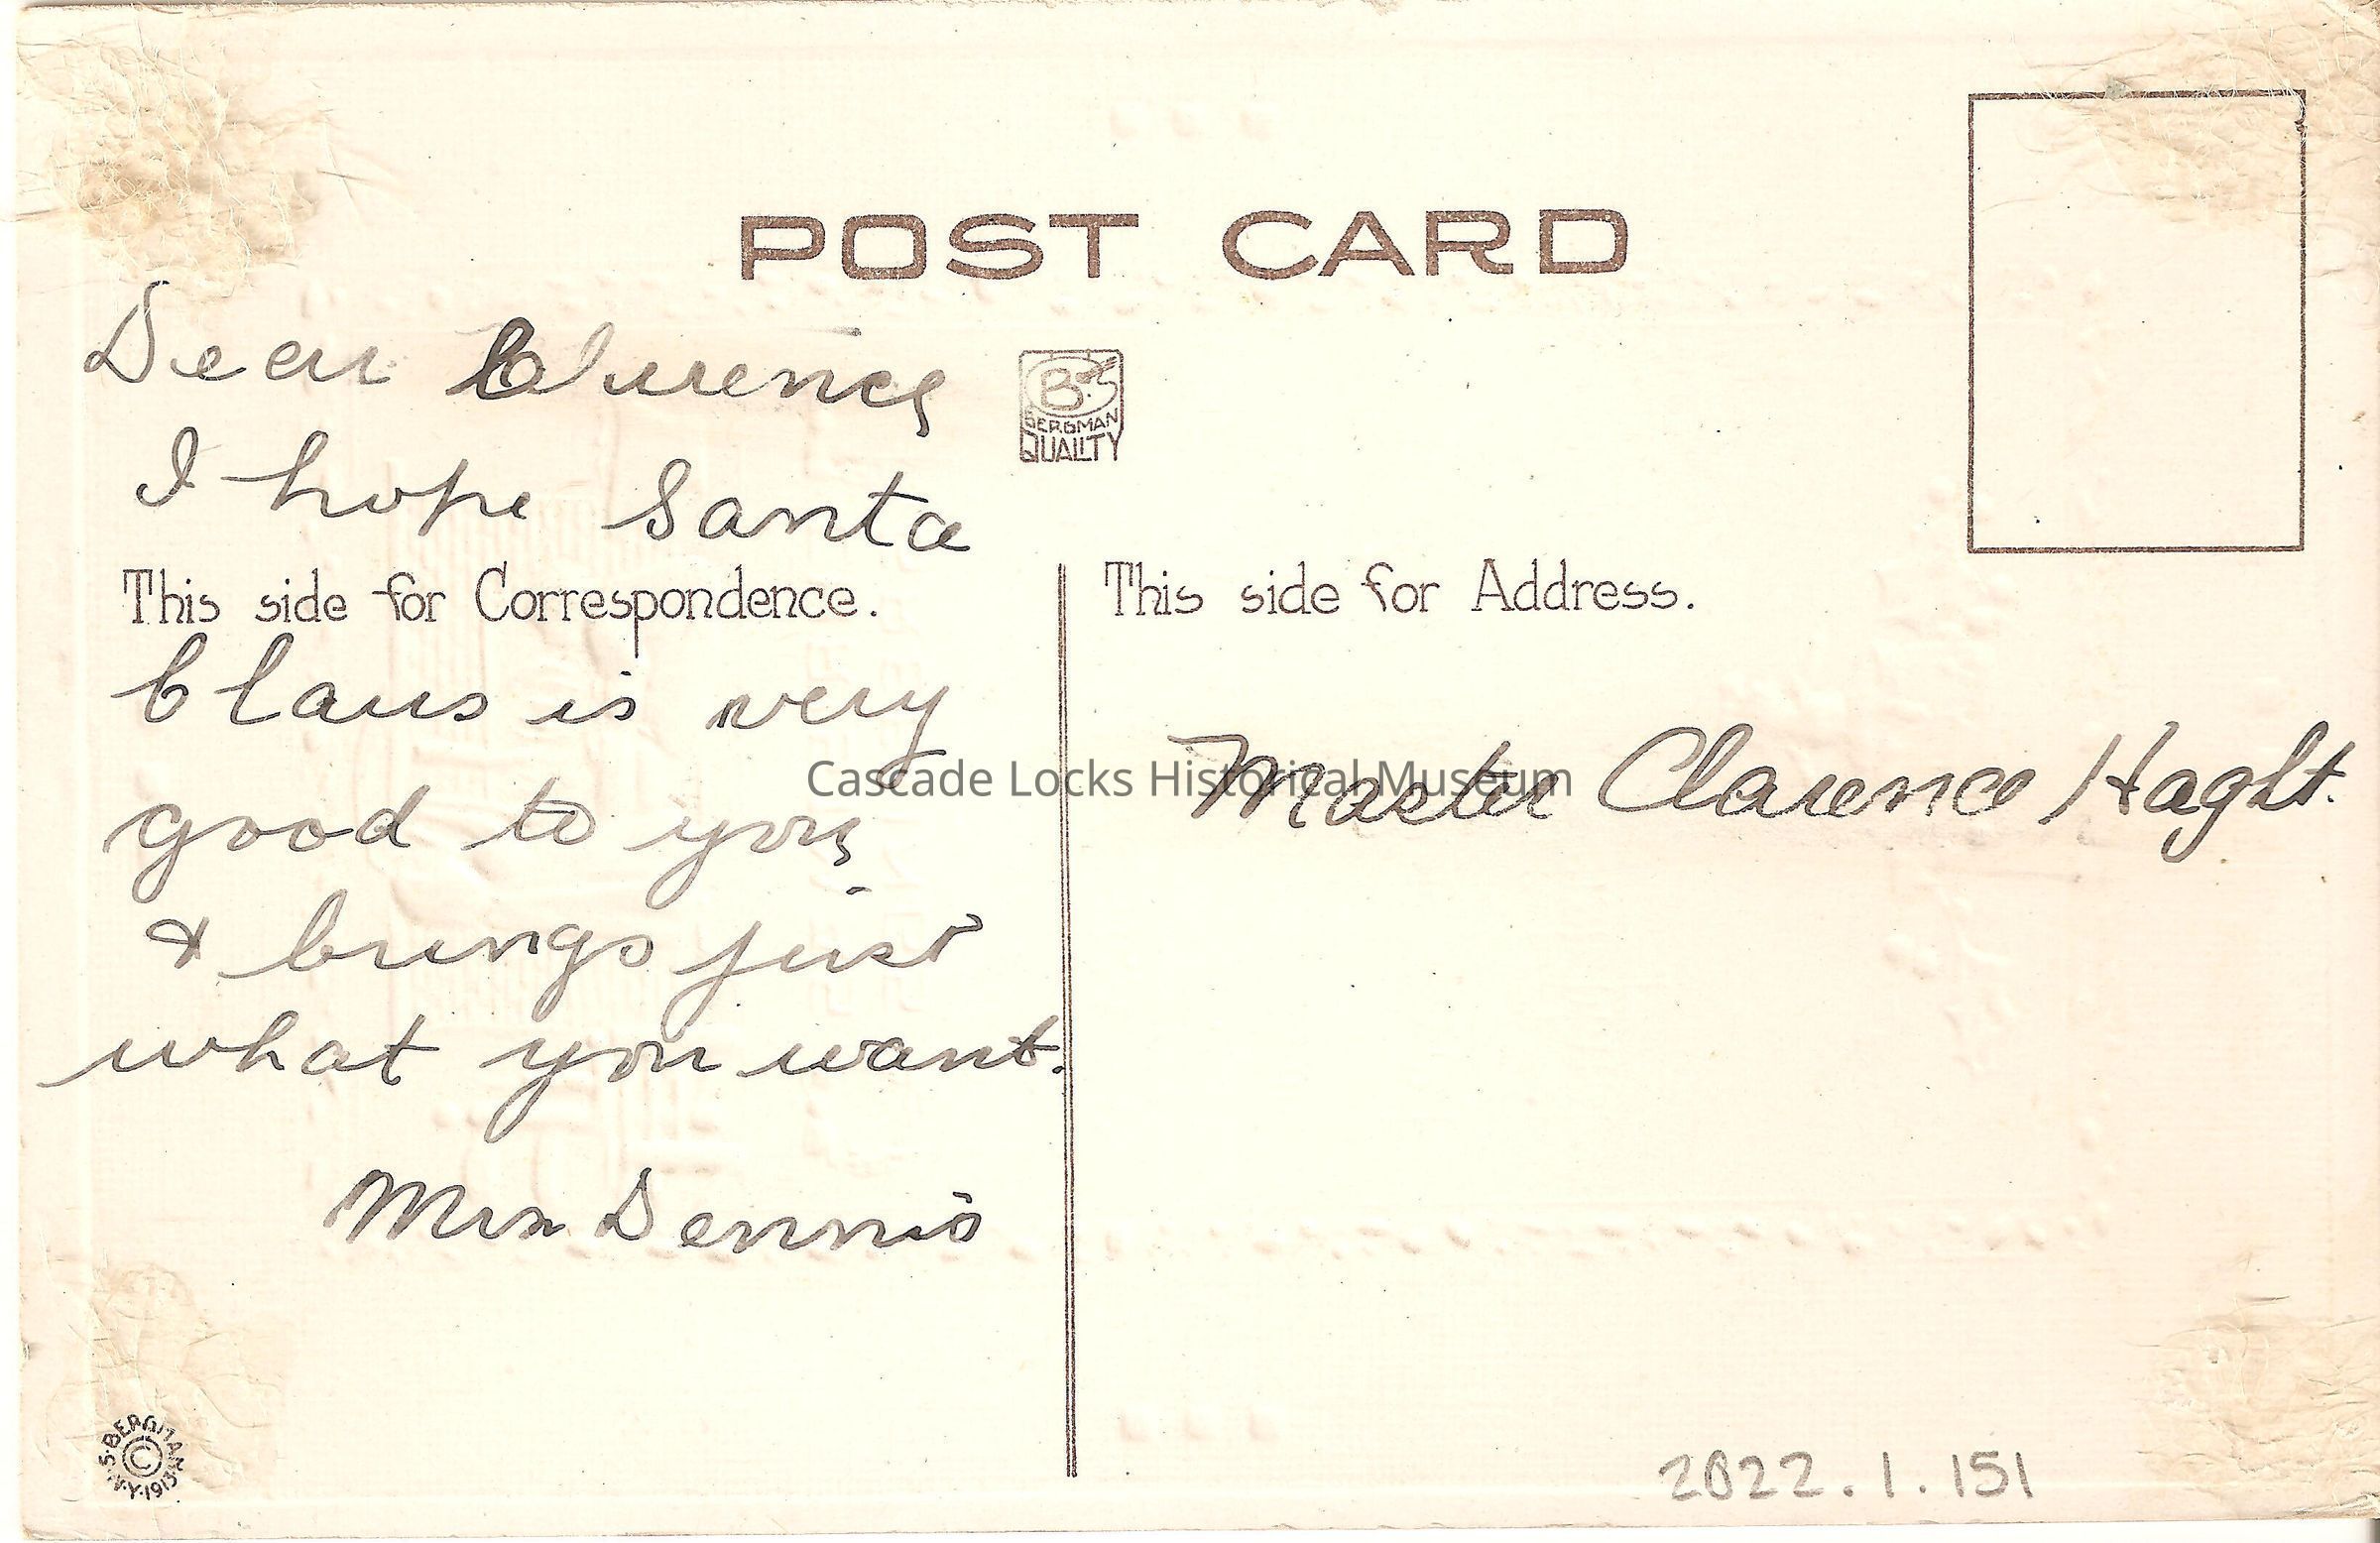 POST CARD
Dear Clarence,
B.S
BERGMAN
QUALITY
I hope Santa
This side for Correspondence.
Claus is very
good to you,
& brings just
what you want.
Mrs Dennis
This side for Address.
Master Clarence Haght.
Cascade Locks Historical Museum
S. BERGMAN N.Y. 1913
©
2022.1.151